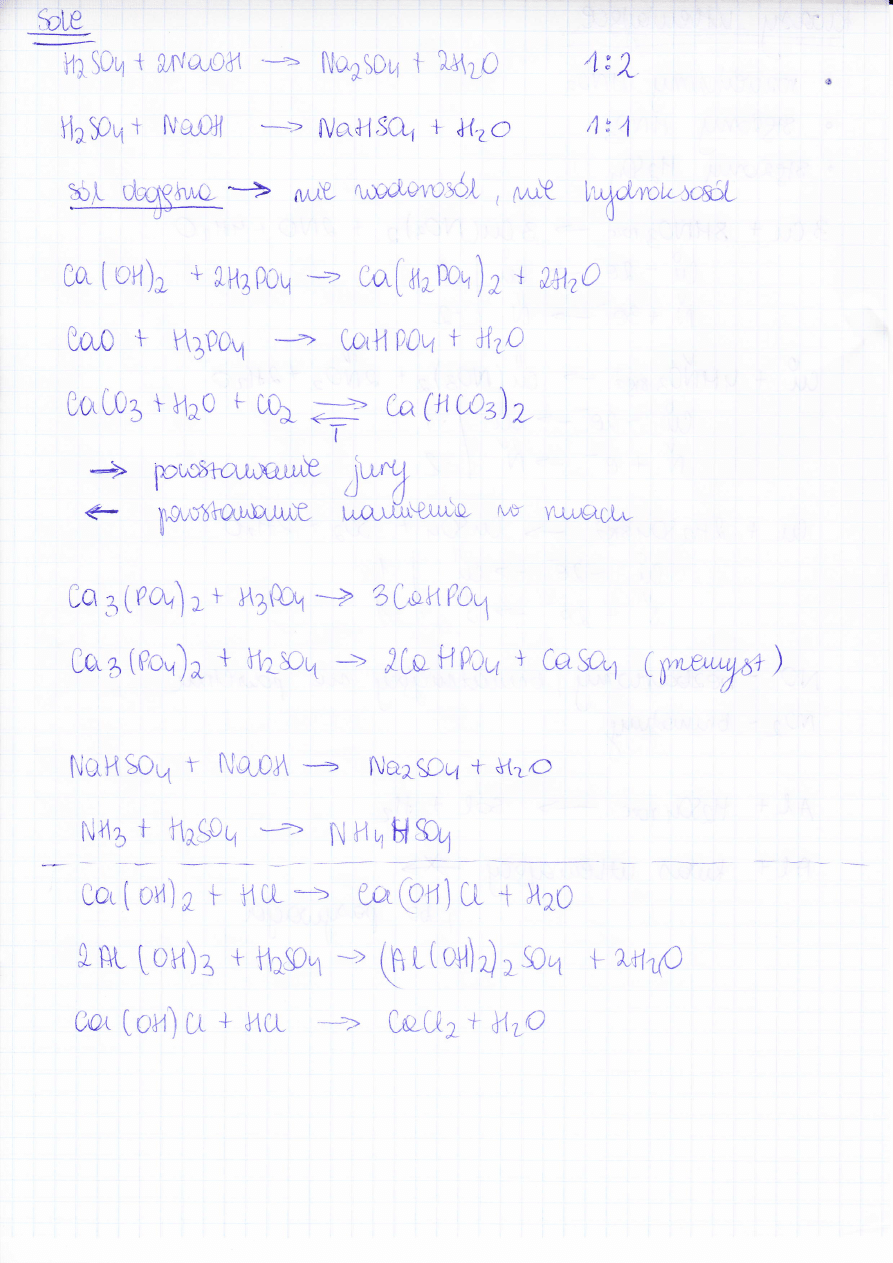 Sole
H₂SO₄ + 2NaOH → Na₂SO₄ + 2H₂O 1:2
H₂SO₄ + NaOH → NaHSO₄ + H₂O 1:1
sól obojętna → nie wodorosól, nie hydroksosól
Ca(OH)₂ + 2H₃PO₄ → Ca(H₂PO₄)₂ + 2H₂O
CaO + H₃PO₄ → CaHPO₄ + H₂O
CaCO₃ + H₂O + CO₂ ⇌ Ca(HCO₃)₂
T
→ powstawanie jury
← powstawanie kamienia w rurach
Ca₃(PO₄)₂ + H₃PO₄ → 3CaHPO₄
Ca₃(PO₄)₂ + H₂SO₄ → 2CaHPO₄ + CaSO₄ (przemysł)
NaHSO₄ + NaOH → Na₂SO₄ + H₂O
NH₃ + H₂SO₄ → NH₄HSO₄
Ca(OH)₂ + HCl → Ca(OH)Cl + H₂O
2Al(OH)₃ + H₂SO₄ → (Al(OH)₂)₂SO₄ + 2H₂O
Ca(OH)Cl + HCl → CaCl₂ + H₂O